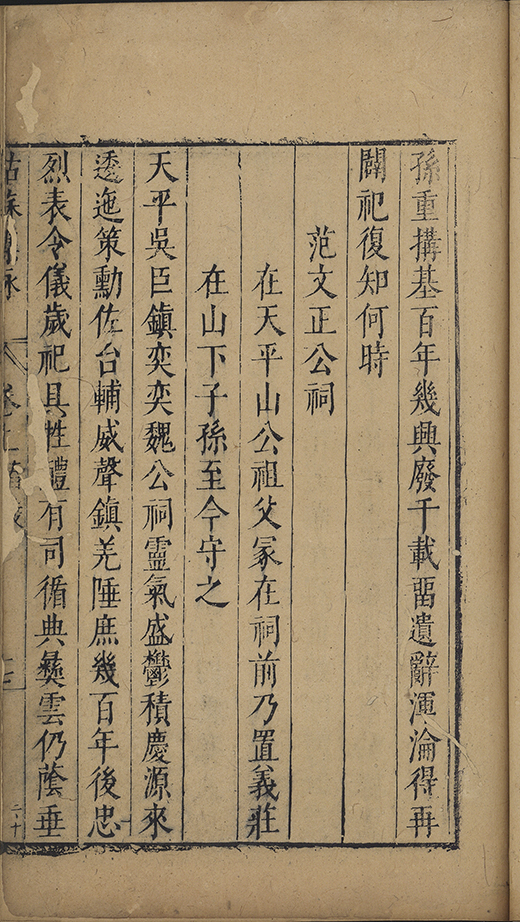 孫重搆基百年幾興廢千載畱遺辭渾淪得再
闢祀復知何時
范文正公祠
在天平山公祖父冢在祠前乃置義莊
在山下子孫至今守之
天平吳巨鎮奕奕魏公祠靈氣盛鬱積慶源來
透迤策勳佐台輔威聲鎮羌陲庶幾百年後忠
烈表令儀歲祀具牲醴有司循典彝雲仍蔭垂
姑蘇 詠 卷上